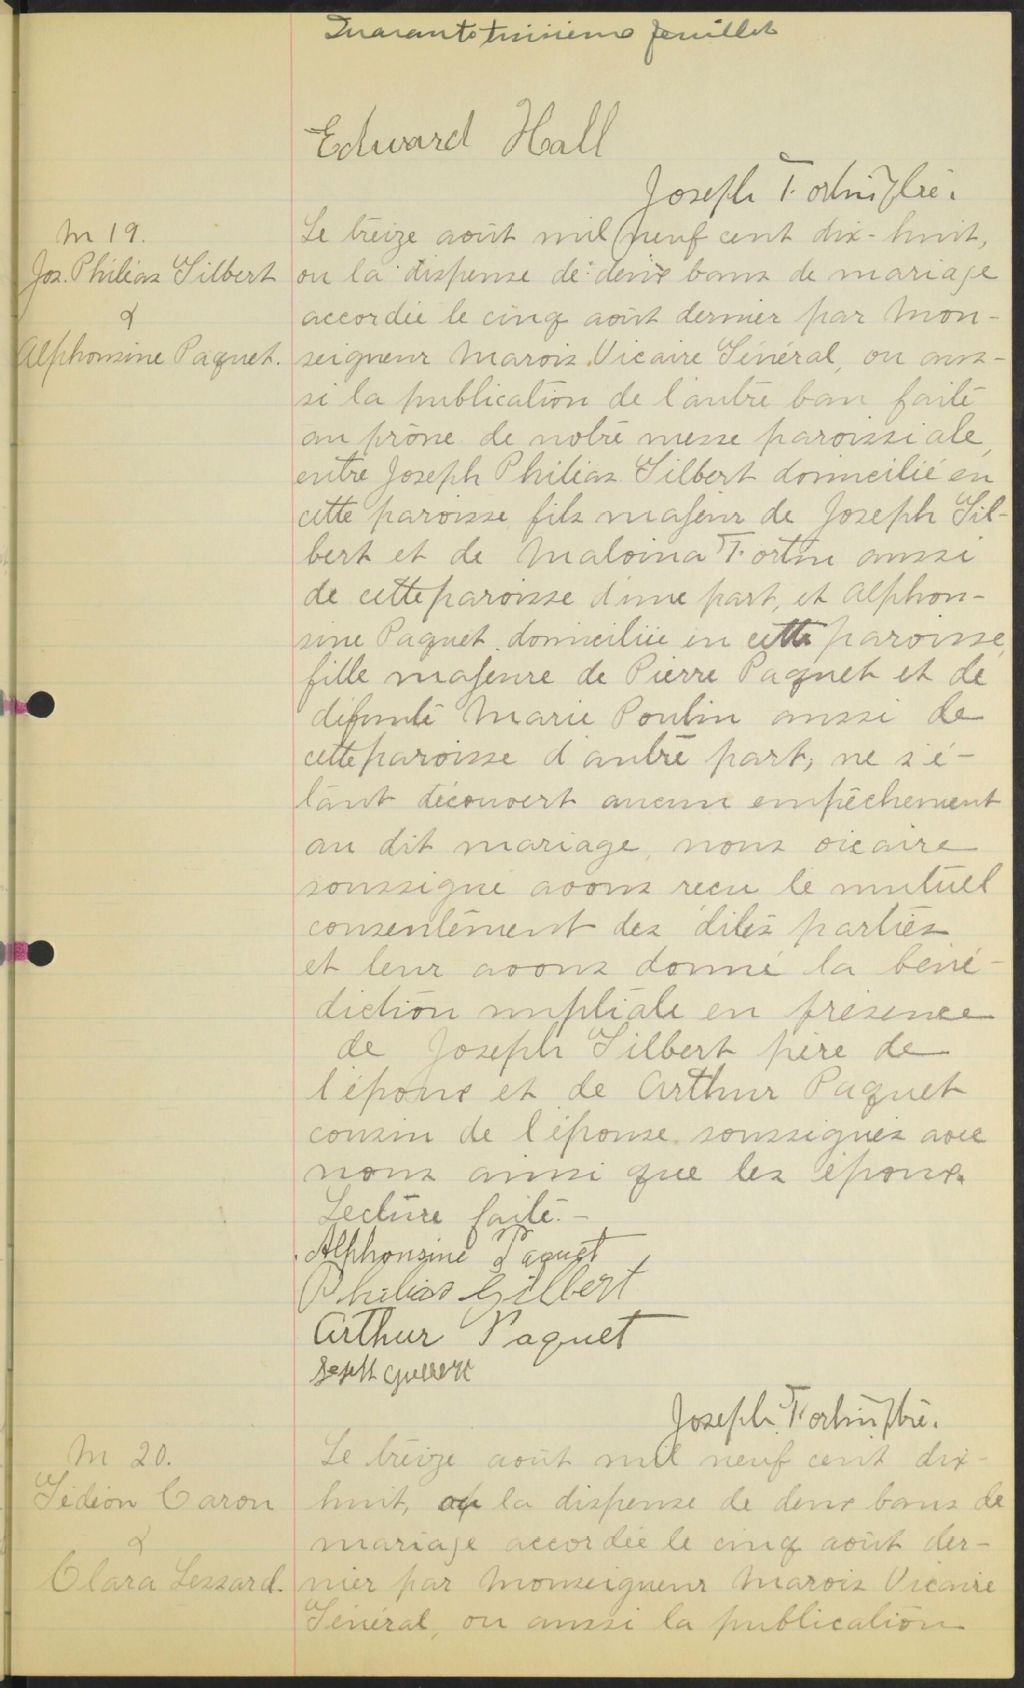 Quarante troisième feuillet
Edward Hall
Joseph Fortin ptre.
M 19.
Jos. Philias Gilbert
&
Alphonsine Paquet.
Le treize août mil neuf cent dix-huit,
vu la dispense de deux bans de mariage
accordée le cinq août dernier par Mon-
seigneur Marois Vicaire Général, vu aus-
si la publication de l'autre ban faite
au prône de notre messe paroissiale,
entre Joseph Philias Gilbert domicilié en
cette paroisse, fils majeur de Joseph Gil-
bert et de Malvina Fortin aussi
de cette paroisse d'une part, et Alphon-
sine Paquet domiciliée en cette paroisse,
fille majeure de Pierre Paquet et de
défunte Marie Poulin aussi de
cette paroisse d'autre part; ne s'é-
tant découvert aucun empêchement
au dit mariage, nous vicaire
soussigné avons reçu le mutuel
consentement des dites parties
et leur avons donné la béné-
diction nuptiale en présence
de Joseph Gilbert père de
l'époux et de Arthur Paquet
cousin de l'épouse soussignés avec
nous ainsi que les époux.
Lecture faite.-
Alphonsine Paquet
Philias Gilbert
Arthur Paquet
Joseph Gilbert
Joseph Fortin ptre.
M 20.
Gédéon Caron
&
Clara Lessard.
Le treize août mil neuf cent dix-
huit, vu la dispense de deux bans de
mariage accordée le cinq août der-
nier par Monseigneur Marois Vicaire
Général, vu aussi la publication